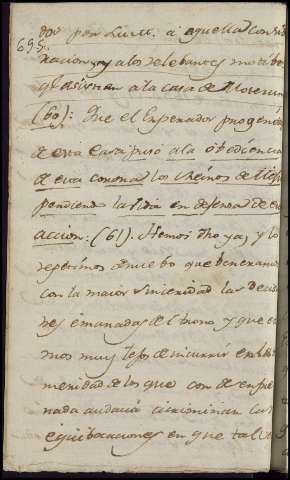 695.
dos por Luis I. á aquella conside
racion, y a los relebantes motibos
q.e asistian a la casa de Moctezuma
(60): Que el Emperador progenitor
de esta casa puso a la obediencia
de esta corona los Reinos de
perdiendo la vida en defensa de esta
accion: (61). Hemos dho ya, y lo
repetimos de nuebo que beneramos
con la maior sinceridad las decisio
nes emanadas del trono y que esta
mos muy lejos de incurrir en la te
meridad de los que con desenfre
nada audacia criminan las
equibocaciones en que tal vez